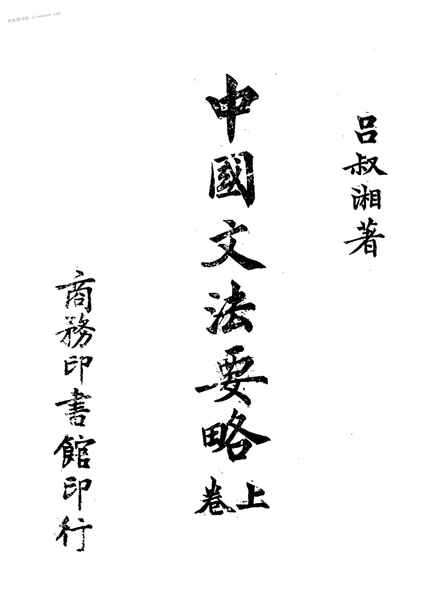 呂叔湘著
中國文法要略
上卷
商務印書館印行